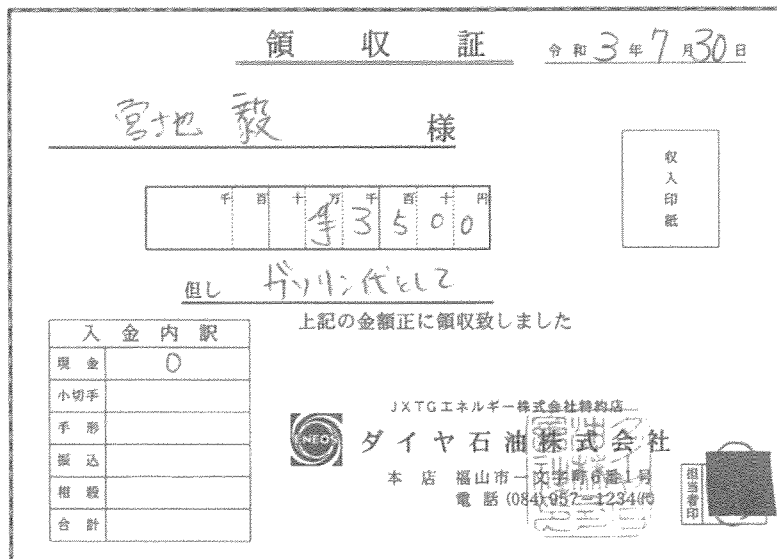 領収証
令和3年7月30日
宮地 毅 様
収入印紙
千百十万千百十円
¥3500
但し ガソリン代として
上記の金額正に領収致しました
入金内訳
現金 0
小切手
手形
振込
相殺
合計
JXTGエネルギー株式会社特約店
ENEOS
ダイヤ石油株式会社
本店 福山市一文字町6番1号
電話(084)957-1234㈹
担当者印